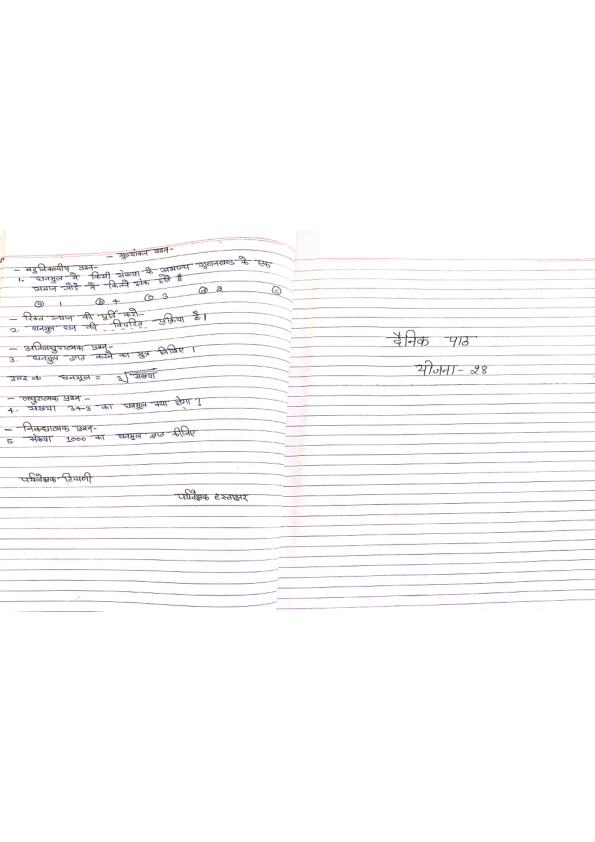 - मुल्यांकन प्रश्न-
- बहुविकल्पीय प्रश्न-
1. घनमुल में किसी संख्या के अभाज्य गुणनखण्ड के एक
समान जोड़े में कितने अंक होते है
(a) 1 (b) 4 (c) 3 (d) 2 (c)
- रिक्त स्थान की पूर्ति करो-
2. घनमुल घन की विपरित प्रक्रिया है।
- अतिलघुरात्मक प्रश्न-
3. घनमुल ज्ञात करने का सुत्र लिखिए।
उत्तर घनमुल = 3√संख्या
- लघुरात्मक प्रश्न -
4. संख्या 343 का घनमुल क्या होगा ?
- निबन्धात्मक प्रश्न-
5. संख्या 1000 का घनमुल ज्ञात कीजिए
पर्यवेक्षक टिप्पणी
पर्यवेक्षक हस्ताक्षर
दैनिक पाठ
योजना - २8